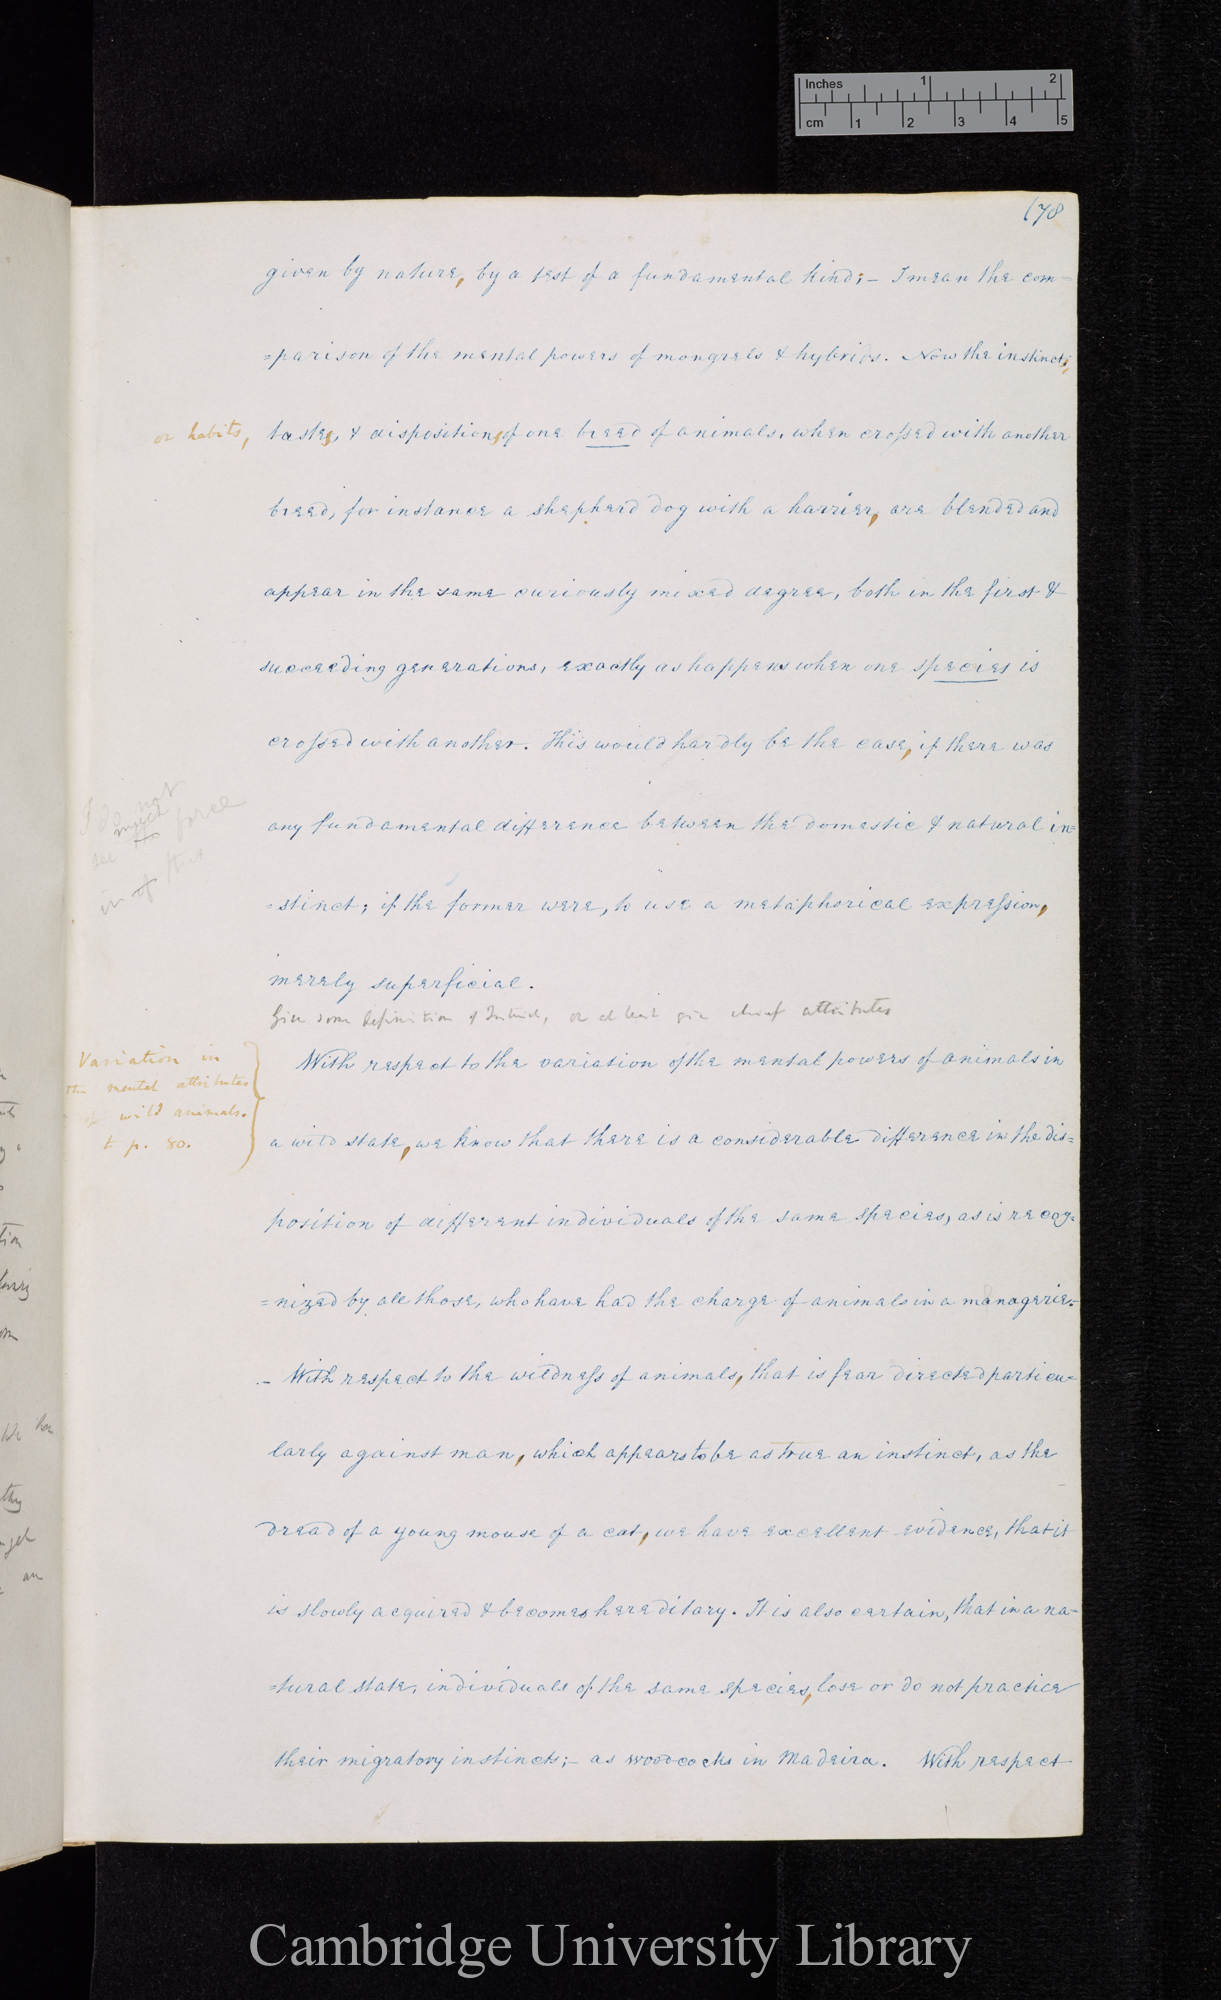 Inches 1 2
cm 1 2 3 4 5
(78
given by nature, by a test of a fundamental kind; – I mean the com-
=parison of the mental powers of mongrels & hybrids. Now the instincts,
or habits, tastes, & dispositions, of one breed of animals, when crossed with another
breed, for instance a shepherd dog with a harrier, are blended and
appear in the same curiously mixed degree, both in the first &
succeeding generations, exactly as happens when one species is
crossed with another. This would hardly be the case, if there was
I do not
see much force
in this
any fundamental difference between the domestic & natural in=
=stinct; if the former were, to use a metaphorical expression,
merely superficial.
Give some definition of Instinct, or at least give chief attributes
Variation in
the mental attributes
of wild animals.
to p. 80.
With respect to the variation of the mental powers of animals in
a wild state, we know that there is a considerable difference in the dis=
position of different individuals of the same species, as is recog=
=nized by all those, who have had the charge of animals in a managerie.
– With respect to the wildness of animals, that is fear directed particu=
larly against man, which appears to be as true an instinct, as the
dread of a young mouse of a cat, we have excellent evidence, that it
is slowly acquired & becomes hereditary. It is also certain, that in a na-
=tural state, individuals of the same species, lose or do not practice
their migratory instincts; – as woodcocks in Madeira. With respect
Cambridge University Library